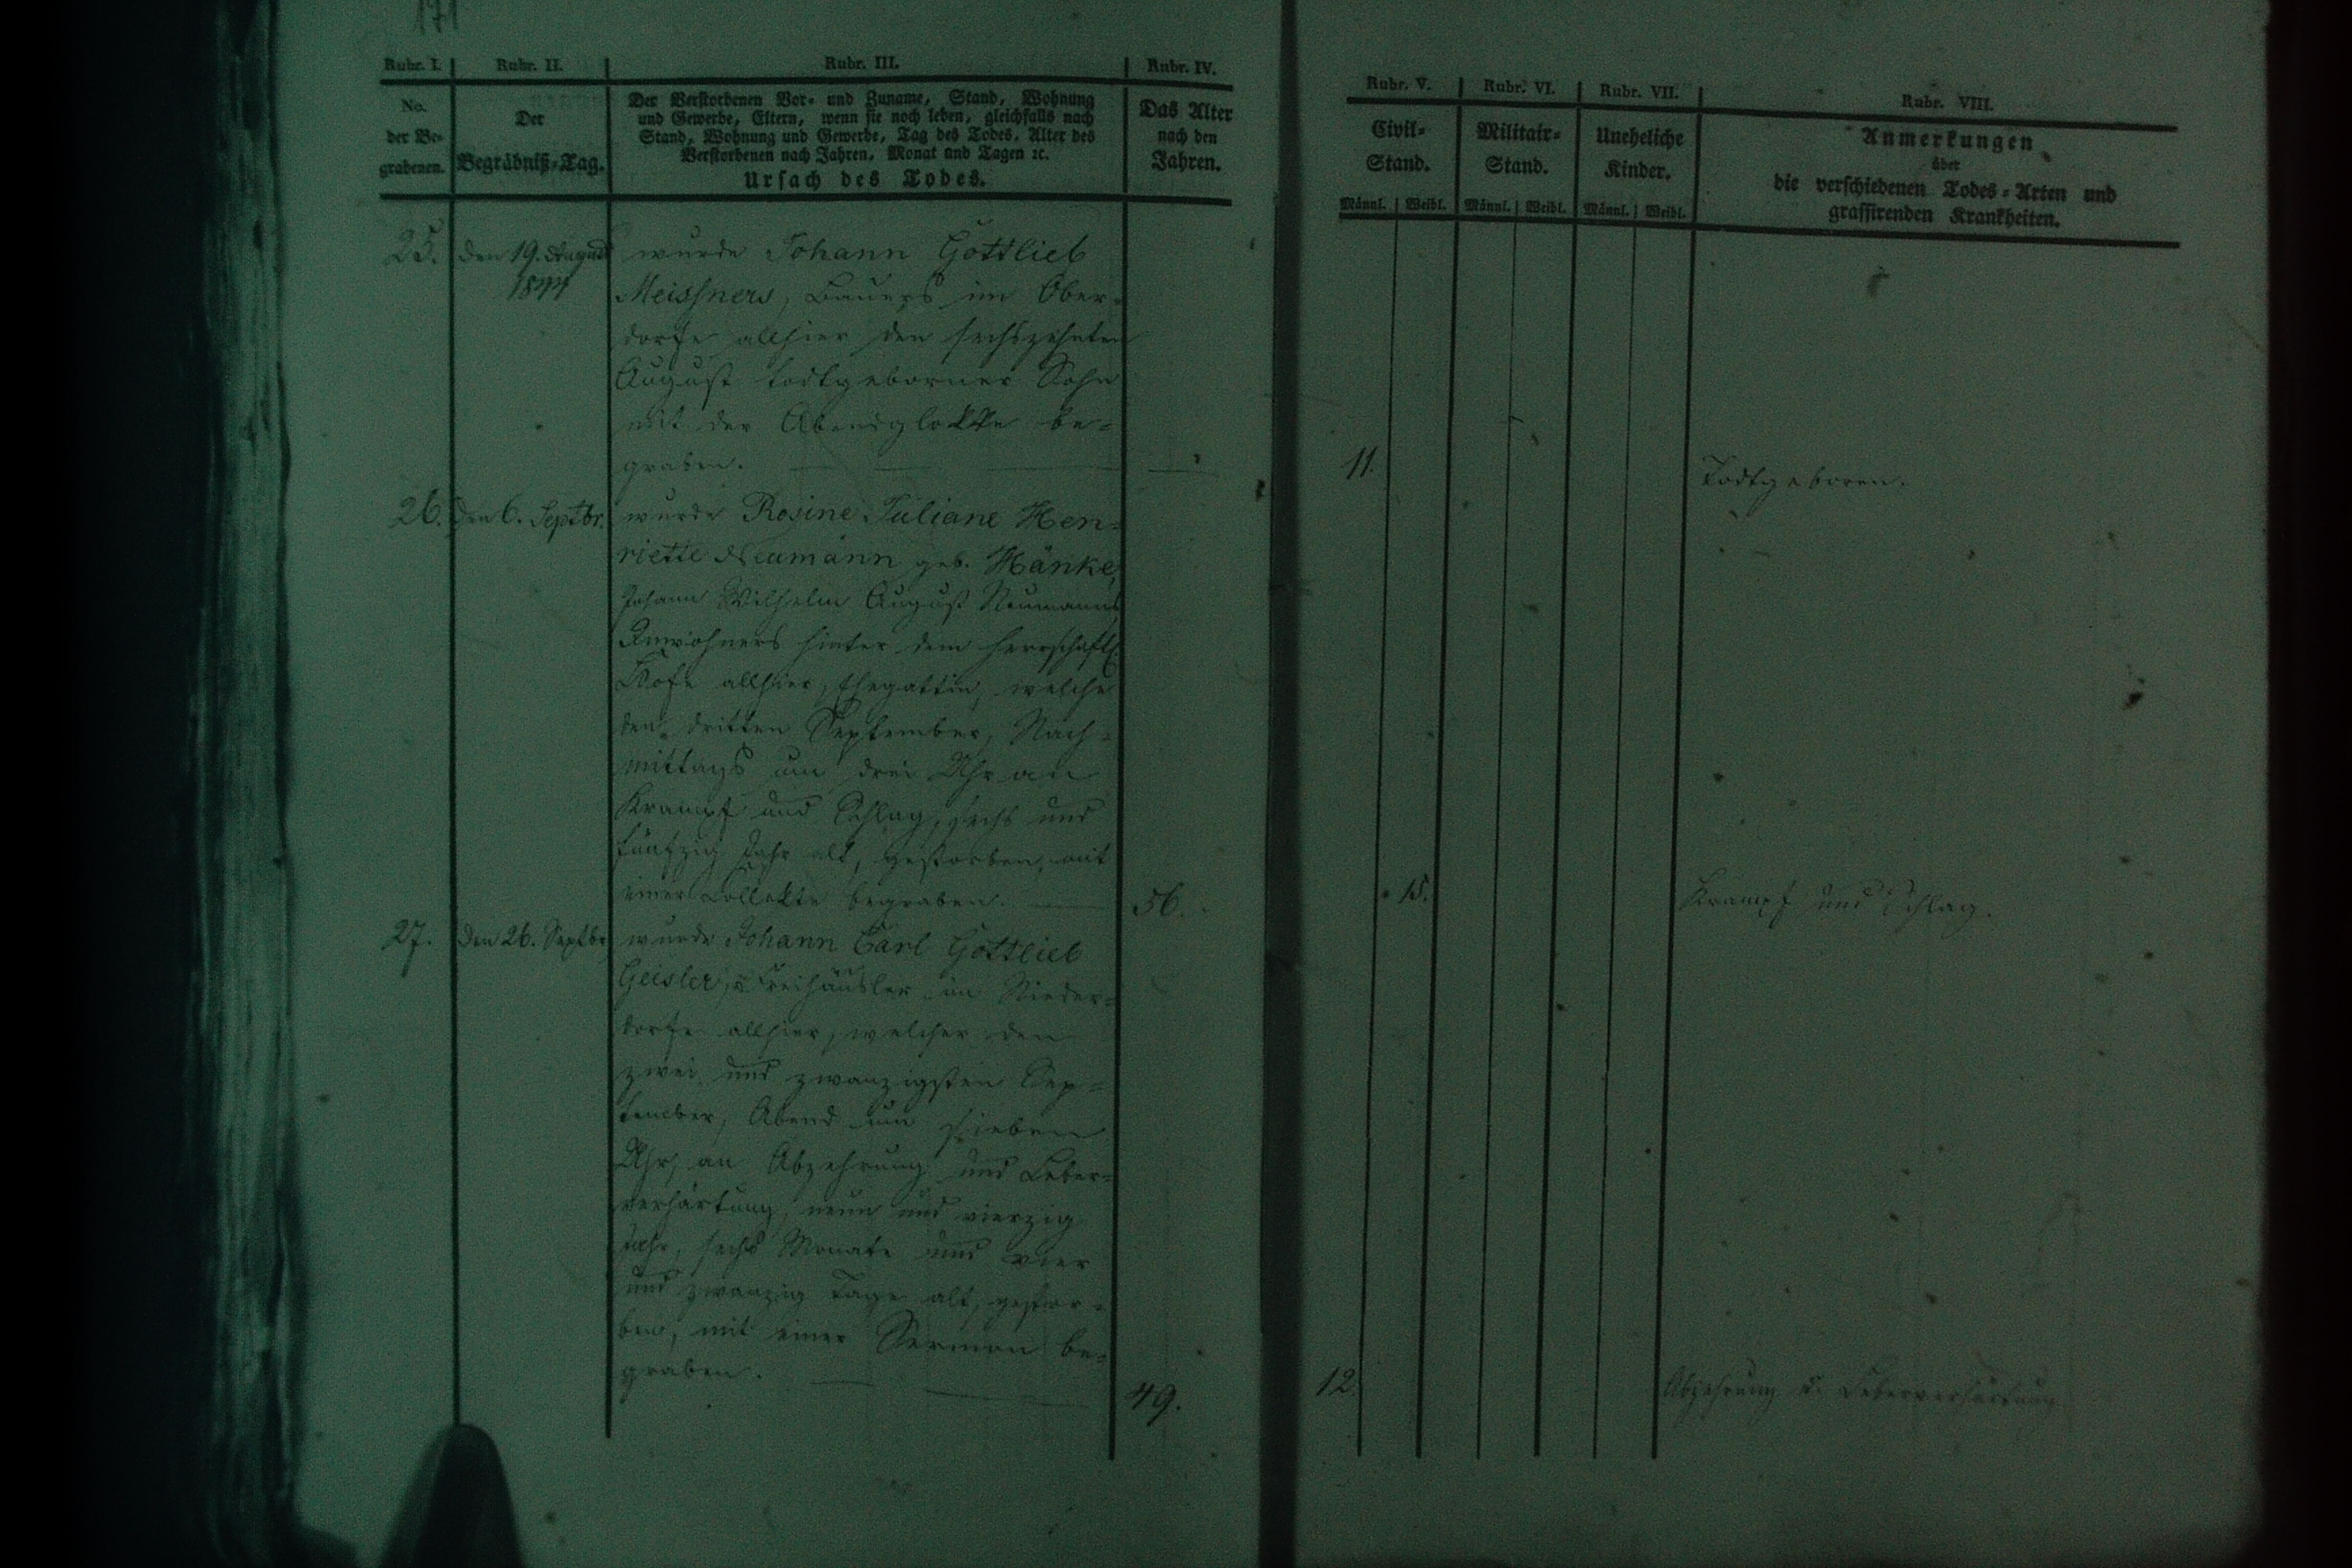 171
Rubr. I. Rubr. II. Rubr. III. Rubr. IV.
No. der Begrabenen.
Der Begräbniß-Tag.
Der Verstorbenen Vor- und Zuname, Stand, Wohnung
und Gewerbe, Eltern, wenn sie noch leben, gleichfalls nach
Stand, Wohnung und Gewerbe, Tag des Todes, Alter des
Verstorbenen nach Jahren, Monat und Tagen ꝛc.
Ursach des Todes.
Das Alter
nach den
Jahren.
25. den 19. August
1844
wurde Johann Gottlieb
Meissners, Bauers im Ober-
dorfe allhier den sechszehnten
August todtgeborner Sohn
mit der Abendglokke be-
graben.
26. den 6. Septbr.
wurde Rosine Juliane Hen-
riette Neumann geb. Hänke,
Johann Wilhelm August Neumanns
Inwohners hinter dem herrschaftl.
Hofe allhier, Ehegattin, welche
den dritten September, Nach-
mittags um drei Uhr an
Krampf und Schlag, sechs und
fünfzig Jahr alt, gestorben, mit
einer Collekte begraben.
56.
27. den 26. Septbr.
wurde Johann Carl Gottlieb
Geisler, Freihäusler im Nieder-
dorfe allhier, welcher den
zwei und zwanzigsten Sep-
tember, Abend um sieben
Uhr, an Abzehrung und Leber-
verhärtung, neun und vierzig
Jahr, sechs Monate und vier
und zwanzig Tage alt, gestor-
ben, mit einer Sermon be-
graben.
49.
Rubr. V. Rubr. VI. Rubr. VII. Rubr. VIII.
Civil-
Stand.
Militair-
Stand.
Uneheliche
Kinder.
Anmerkungen
über
die verschiedenen Todes-Arten und
grassirenden Krankheiten.
Männl. Weibl. Männl. Weibl. Männl. Weibl.
11. Todtgeboren.
15. Krampf und Schlag.
12. Abzehrung u. Leberverhärtung